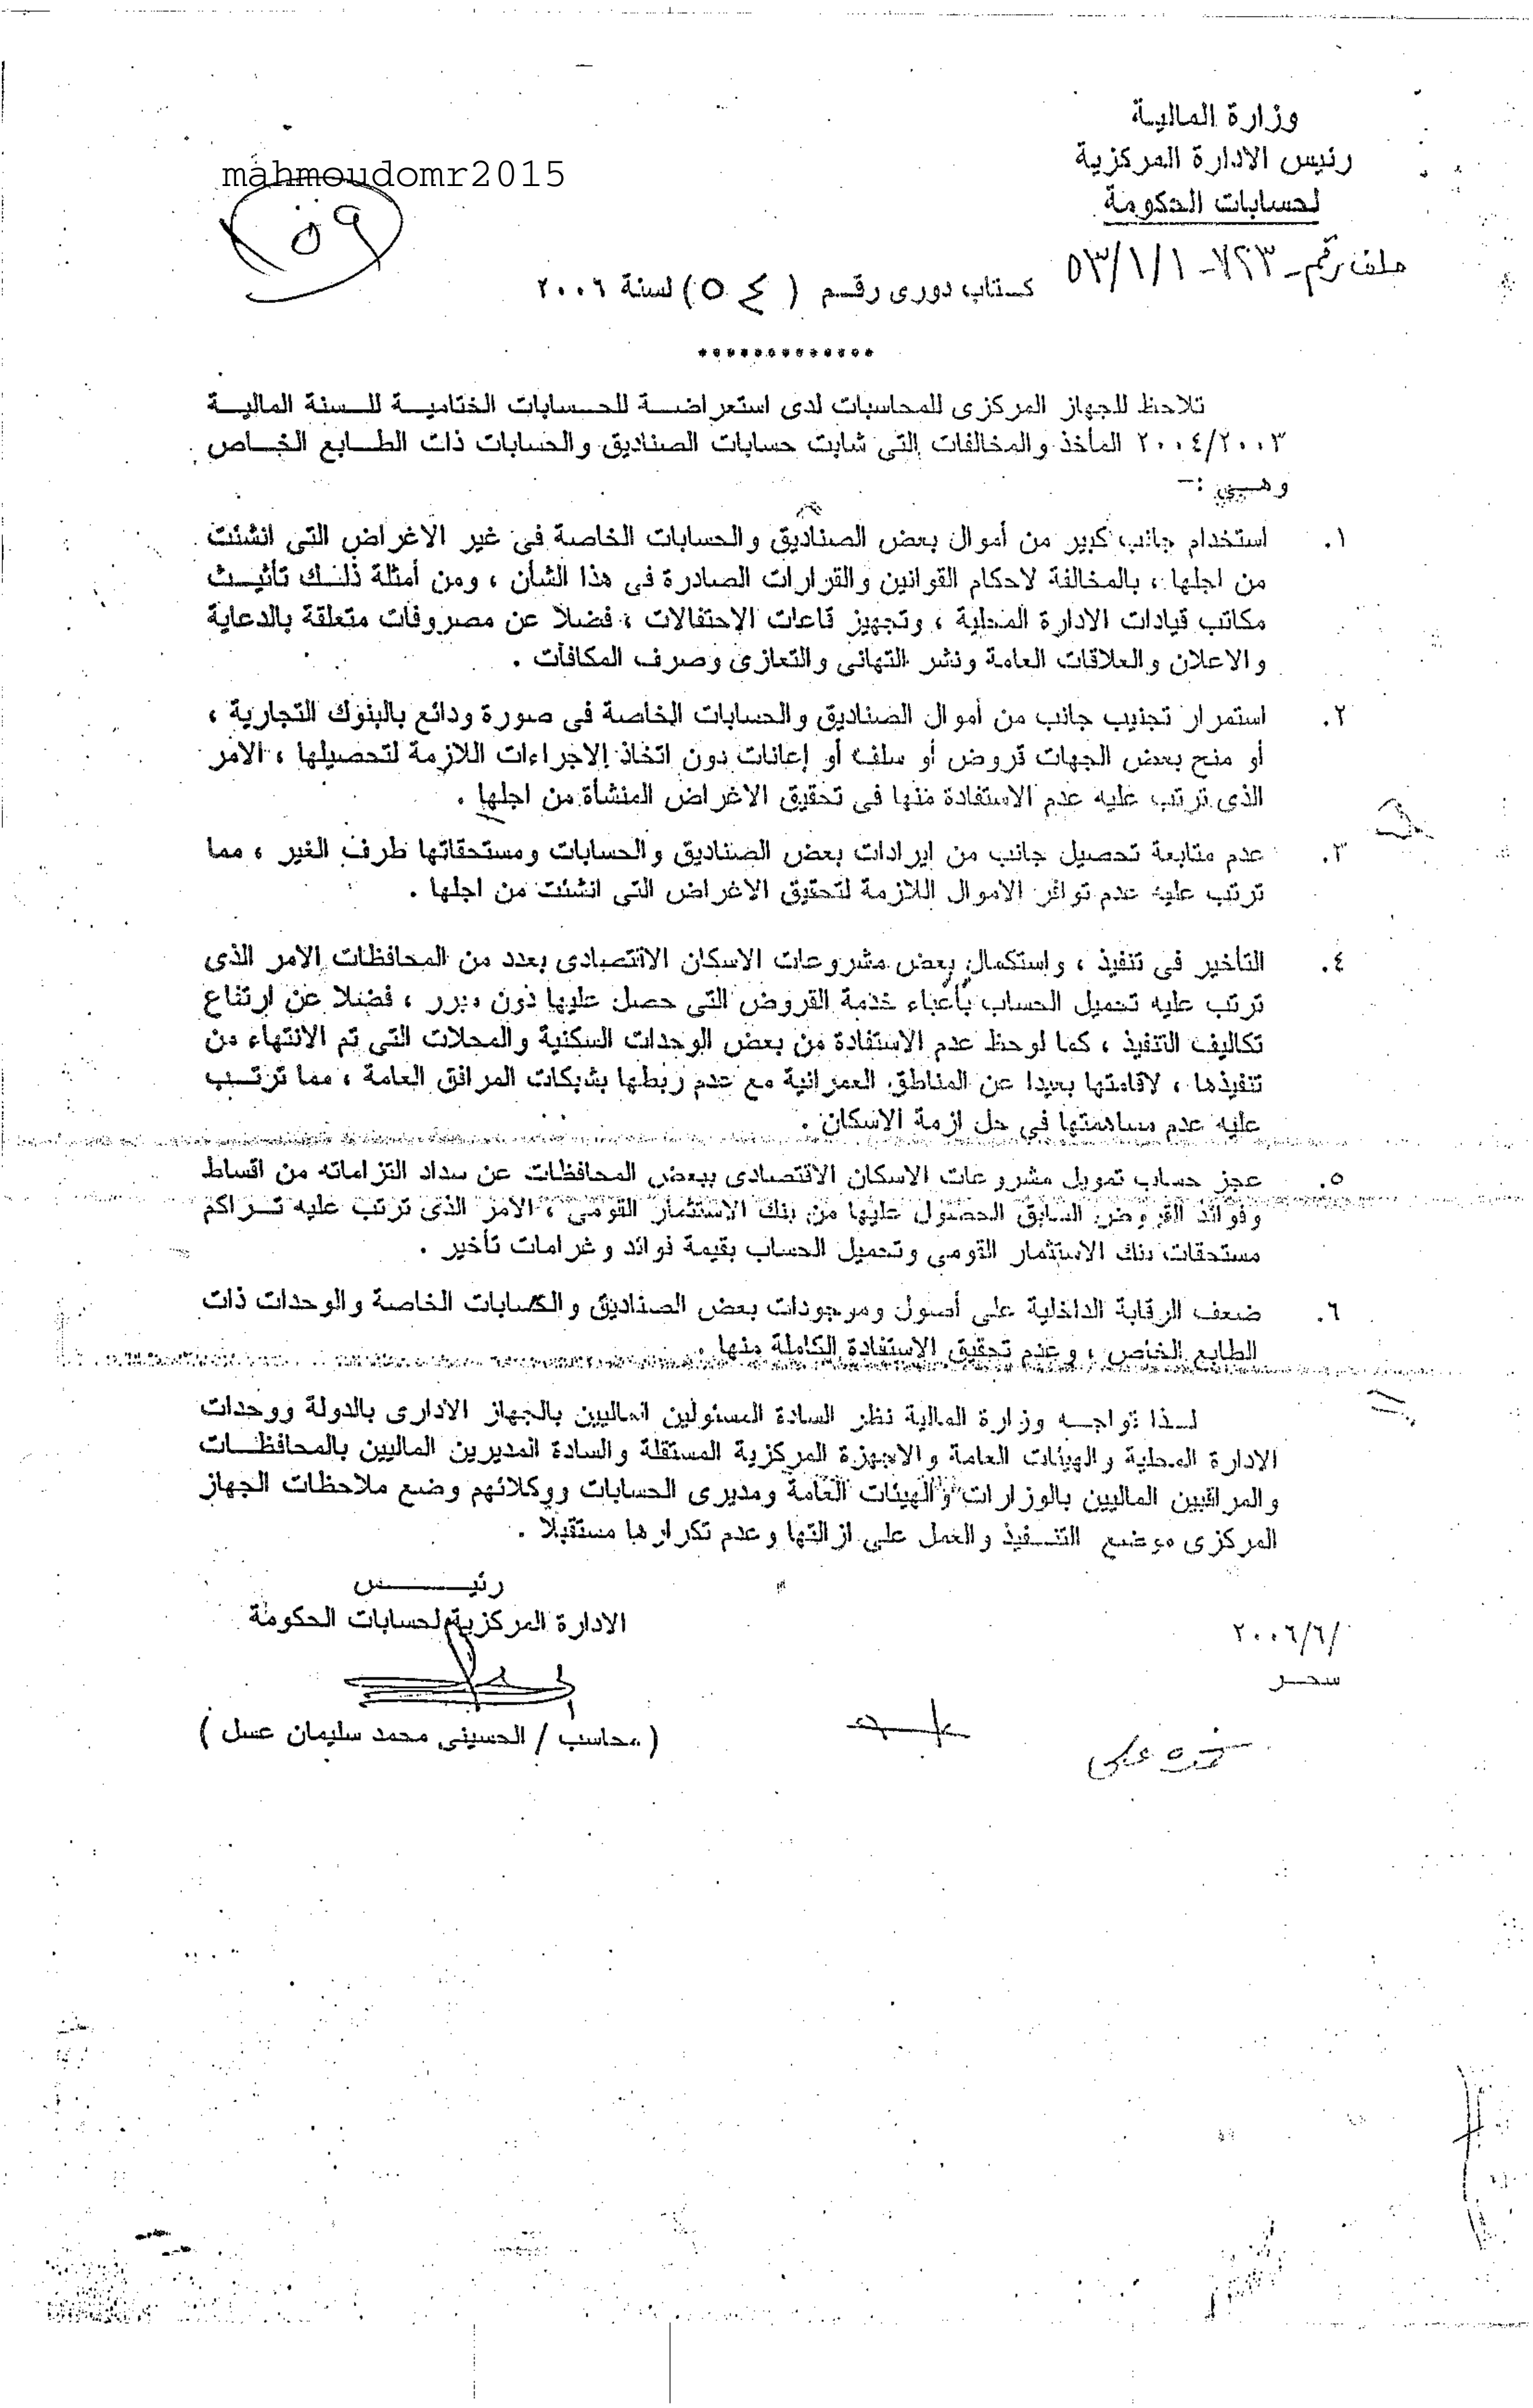 وزارة المالية
رئيس الادارة المركزية
لحسابات الحكومة
mahmoudomr2015
ملف رقم - ٧٢٣ - ٥٣/١/١
كتاب دورى رقم ( ٥٤ ) لسنة ٢٠٠٦
*************
تلاحظ للجهاز المركزى للمحاسبات لدى استعراضة للحسابات الختامية للسنة المالية
٢٠٠٤/٢٠٠٣ المأخذ والمخالفات التى شابت حسابات الصناديق والحسابات ذات الطابع الخاص
وهى :-
١. استخدام جانب كبير من أموال بعض الصناديق والحسابات الخاصة فى غير الاغراض التى انشئت
من اجلها ، بالمخالفة لاحكام القوانين والقرارات الصادرة فى هذا الشأن ، ومن أمثلة ذلك تأثيث
مكاتب قيادات الادارة المحلية ، وتجهيز قاعات الاحتفالات ، فضلا عن مصروفات متعلقة بالدعاية
والاعلان والعلاقات العامة ونشر التهانى والتعازى وصرف المكافآت .
٢. استمرار تجنيب جانب من أموال الصناديق والحسابات الخاصة فى صورة ودائع بالبنوك التجارية ،
أو منح بعض الجهات قروض أو سلف أو إعانات دون اتخاذ الاجراءات اللازمة لتحصيلها ، الامر
الذى ترتب عليه عدم الاستفادة منها فى تحقيق الاغراض المنشأة من اجلها .
٣. عدم متابعة تحصيل جانب من ايرادات بعض الصناديق والحسابات ومستحقاتها طرف الغير ، مما
ترتب عليه عدم توافر الاموال اللازمة لتحقيق الاغراض التى انشئت من اجلها .
٤. التأخير فى تنفيذ ، واستكمال بعض مشروعات الاسكان الاقتصادى بعدد من المحافظات الامر الذى
ترتب عليه تحميل الحساب بأعباء خدمة القروض التى حصل عليها دون مبرر ، فضلا عن ارتفاع
تكاليف التنفيذ ، كما لوحظ عدم الاستفادة من بعض الوحدات السكنية والمحلات التى تم الانتهاء من
تنفيذها ، لاقامتها بعيدا عن المناطق العمرانية مع عدم ربطها بشبكات المرافق العامة ، مما ترتب
عليه عدم مساهمتها فى حل ازمة الاسكان .
٥. عجز حساب تمويل مشروعات الاسكان الاقتصادى ببعض المحافظات عن سداد التزاماته من اقساط
وفوائد القروض السابق الحصول عليها من بنك الاستثمار القومى ، الامر الذى ترتب عليه تراكم
مستحقات بنك الاستثمار القومى وتحميل الحساب بقيمة فوائد وغرامات تأخير .
٦. ضعف الرقابة الداخلية على أصول وموجودات بعض الصناديق والحسابات الخاصة والوحدات ذات
الطابع الخاص ، وعدم تحقيق الاستفادة الكاملة منها .
لذا تواجه وزارة المالية نظر السادة المسئولين الماليين بالجهاز الادارى بالدولة ووحدات
الادارة المحلية والهيئات العامة والاجهزة المركزية المستقلة والسادة المديرين الماليين بالمحافظات
والمراقبين الماليين بالوزارات والهيئات العامة ومديرى الحسابات ووكلائهم وضع ملاحظات الجهاز
المركزى موضع التنفيذ والعمل على ازالتها وعدم تكرارها مستقبلا .
رئيس
الادارة المركزية لحسابات الحكومة
/٢٠٠٦/٦
سحر
( محاسب / الحسينى محمد سليمان عسل )